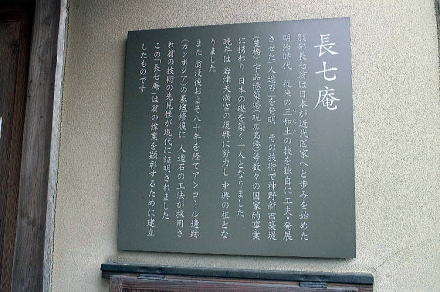 長七庵
服部長七翁は日本が近代国家へと歩みを始めた
明治時代、従来の三和土の技を独自に工夫・発展
させた「人造石」を発明、その技術で神野新田築堤
(豊橋)・宇品港築港(現広島港)等数々の国家的事業
に携わり、日本の礎を築く一人となりました
晩年は、岩津天満宮の復興に努力し中興の祖とな
りました
また、翁没後およそ八十年を経てアンコール遺跡
(カンボジア)の基壇修復に、人造石の工法が採用さ
れ翁の技術の先見性が現代に証明されました
この「長七庵」は翁の偉業を顕彰するために建立
したものです